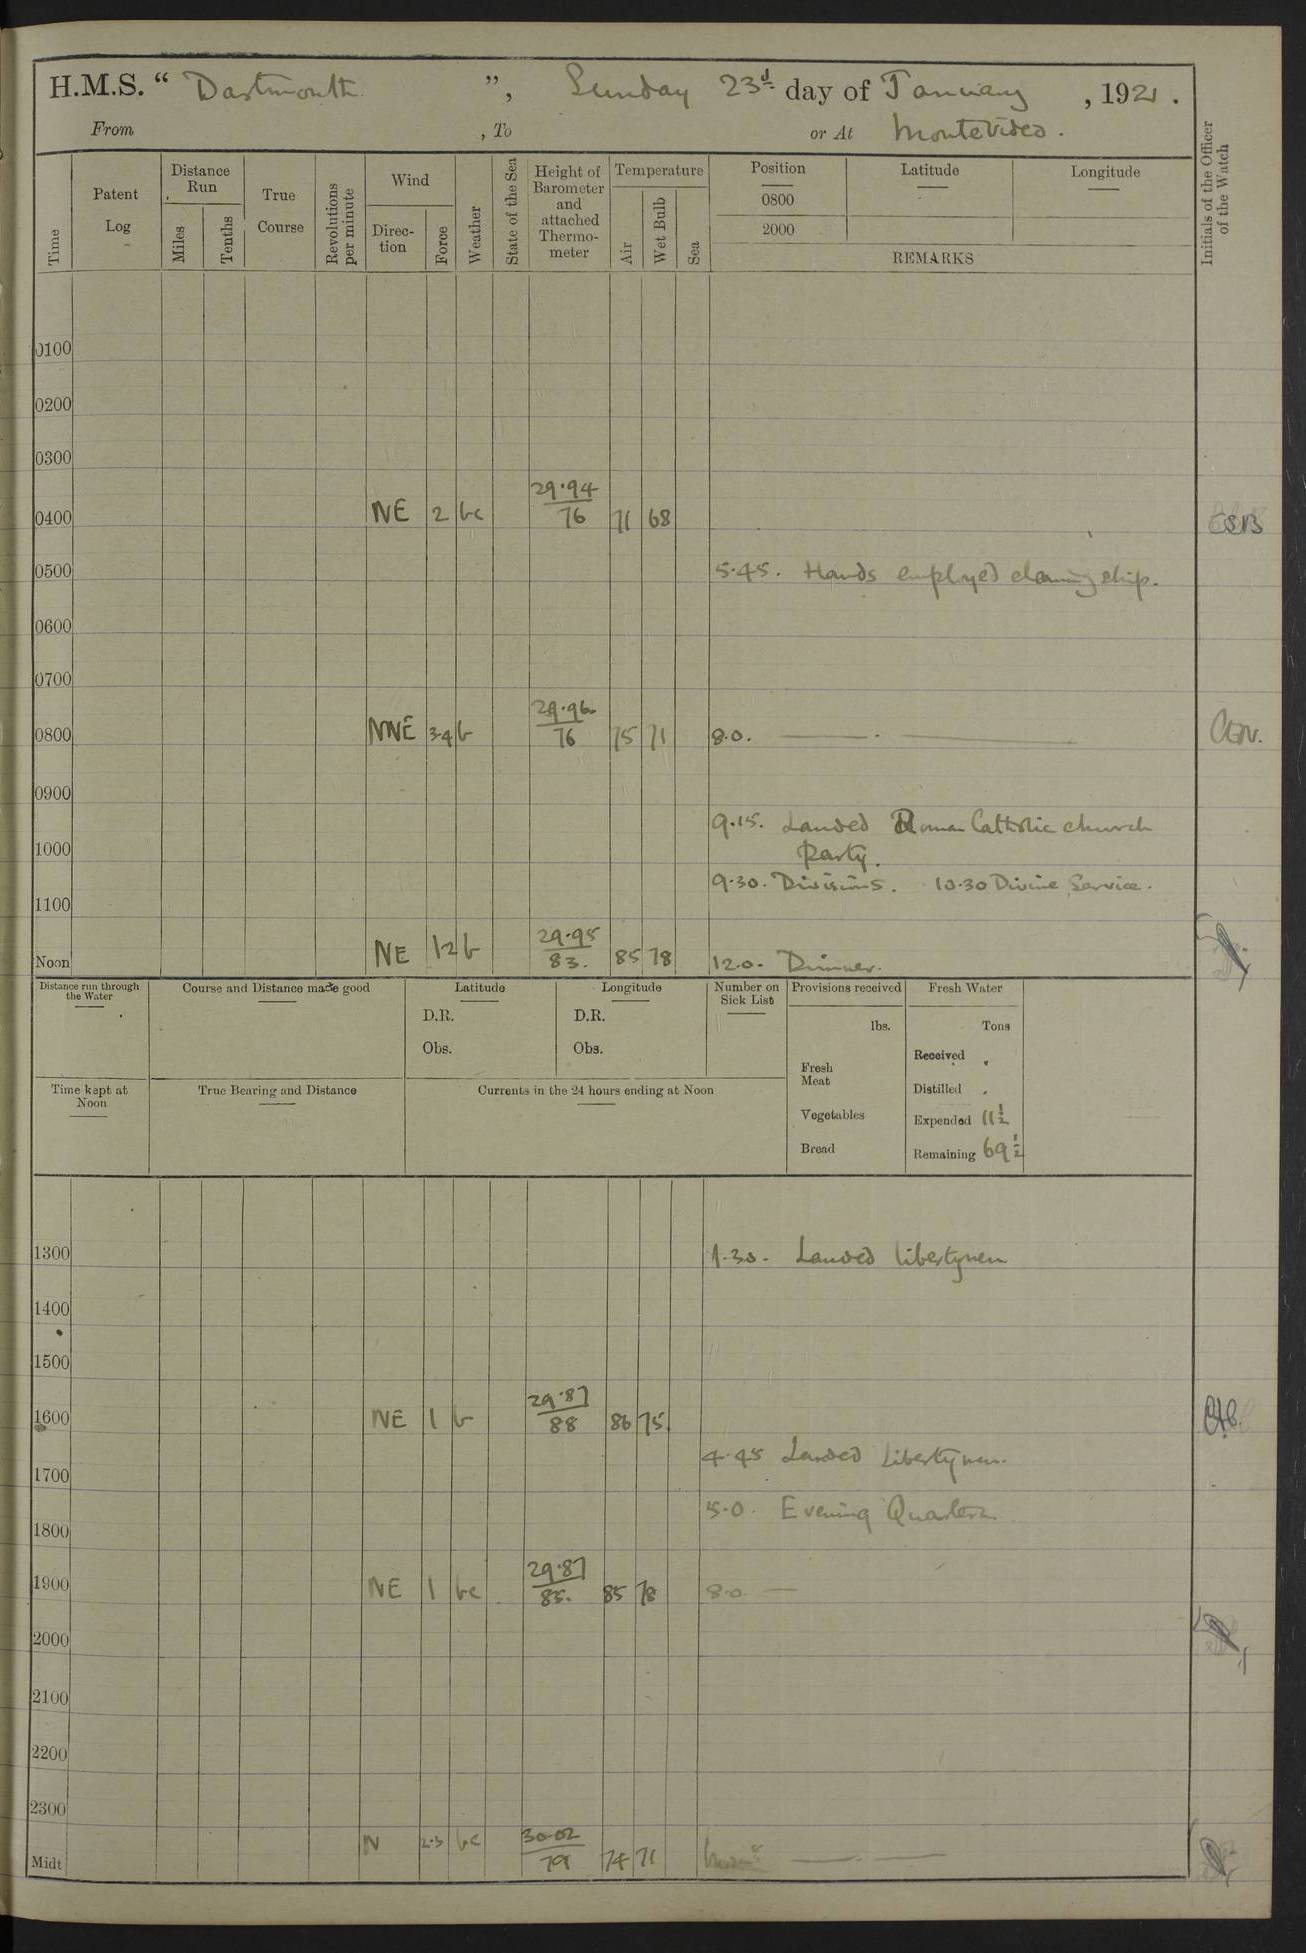 H.M.S. “ Dartmouth ”, Sunday 23d day of January , 1921 .
From , To or At Montevideo .
Time
Patent Log
Distance Run
Miles
Tenths
True Course
Revolutions per minute
Wind
Direc-tion
Force
Weather
State of the Sea
Height of Barometer and attached Thermo-meter
Temperature
Air
Wet Bulb
Sea
Position
Latitude
Longitude
0800
2000
REMARKS
Initials of the Officer of the Watch
0100
0200
0300
0400 NE 2 bc 29.94 76 71 68 ESB
0500 5.45. Hands employed cleaning ship.
0600
0700
0800 NNE 3-4 b 29.96 76 75 71 8.0. —— . ——
0900
9.15. Landed Roman Catholic church
Party.
1000
9.30. Divisions. 10.30 Divine Service.
1100
Noon NE 1-2 b 29.95 83. 85 78 12.0. Dinner.
Distance run through the Water
Course and Distance made good
Latitude
Longitude
Number on Sick List
Provisions received
Fresh Water
D.R. D.R.
lbs. Tons
Obs. Obs.
Received
Fresh Meat
Time kept at Noon
True Bearing and Distance
Currents in the 24 hours ending at Noon
Distilled
Vegetables
Expended 11½
Bread
Remaining 69½
1300 1.30. Landed libertymen
1400
1500
1600 NE 1 b 29.87 88 86 75
4.45 Landed Libertymen.
1700
5.0. Evening Quarters
1800
1900 NE 1 bc 29.87 85. 85 78 8.0 —
2000
2100
2200
2300
Midt N 2.3 bc 30.02 79 74 71